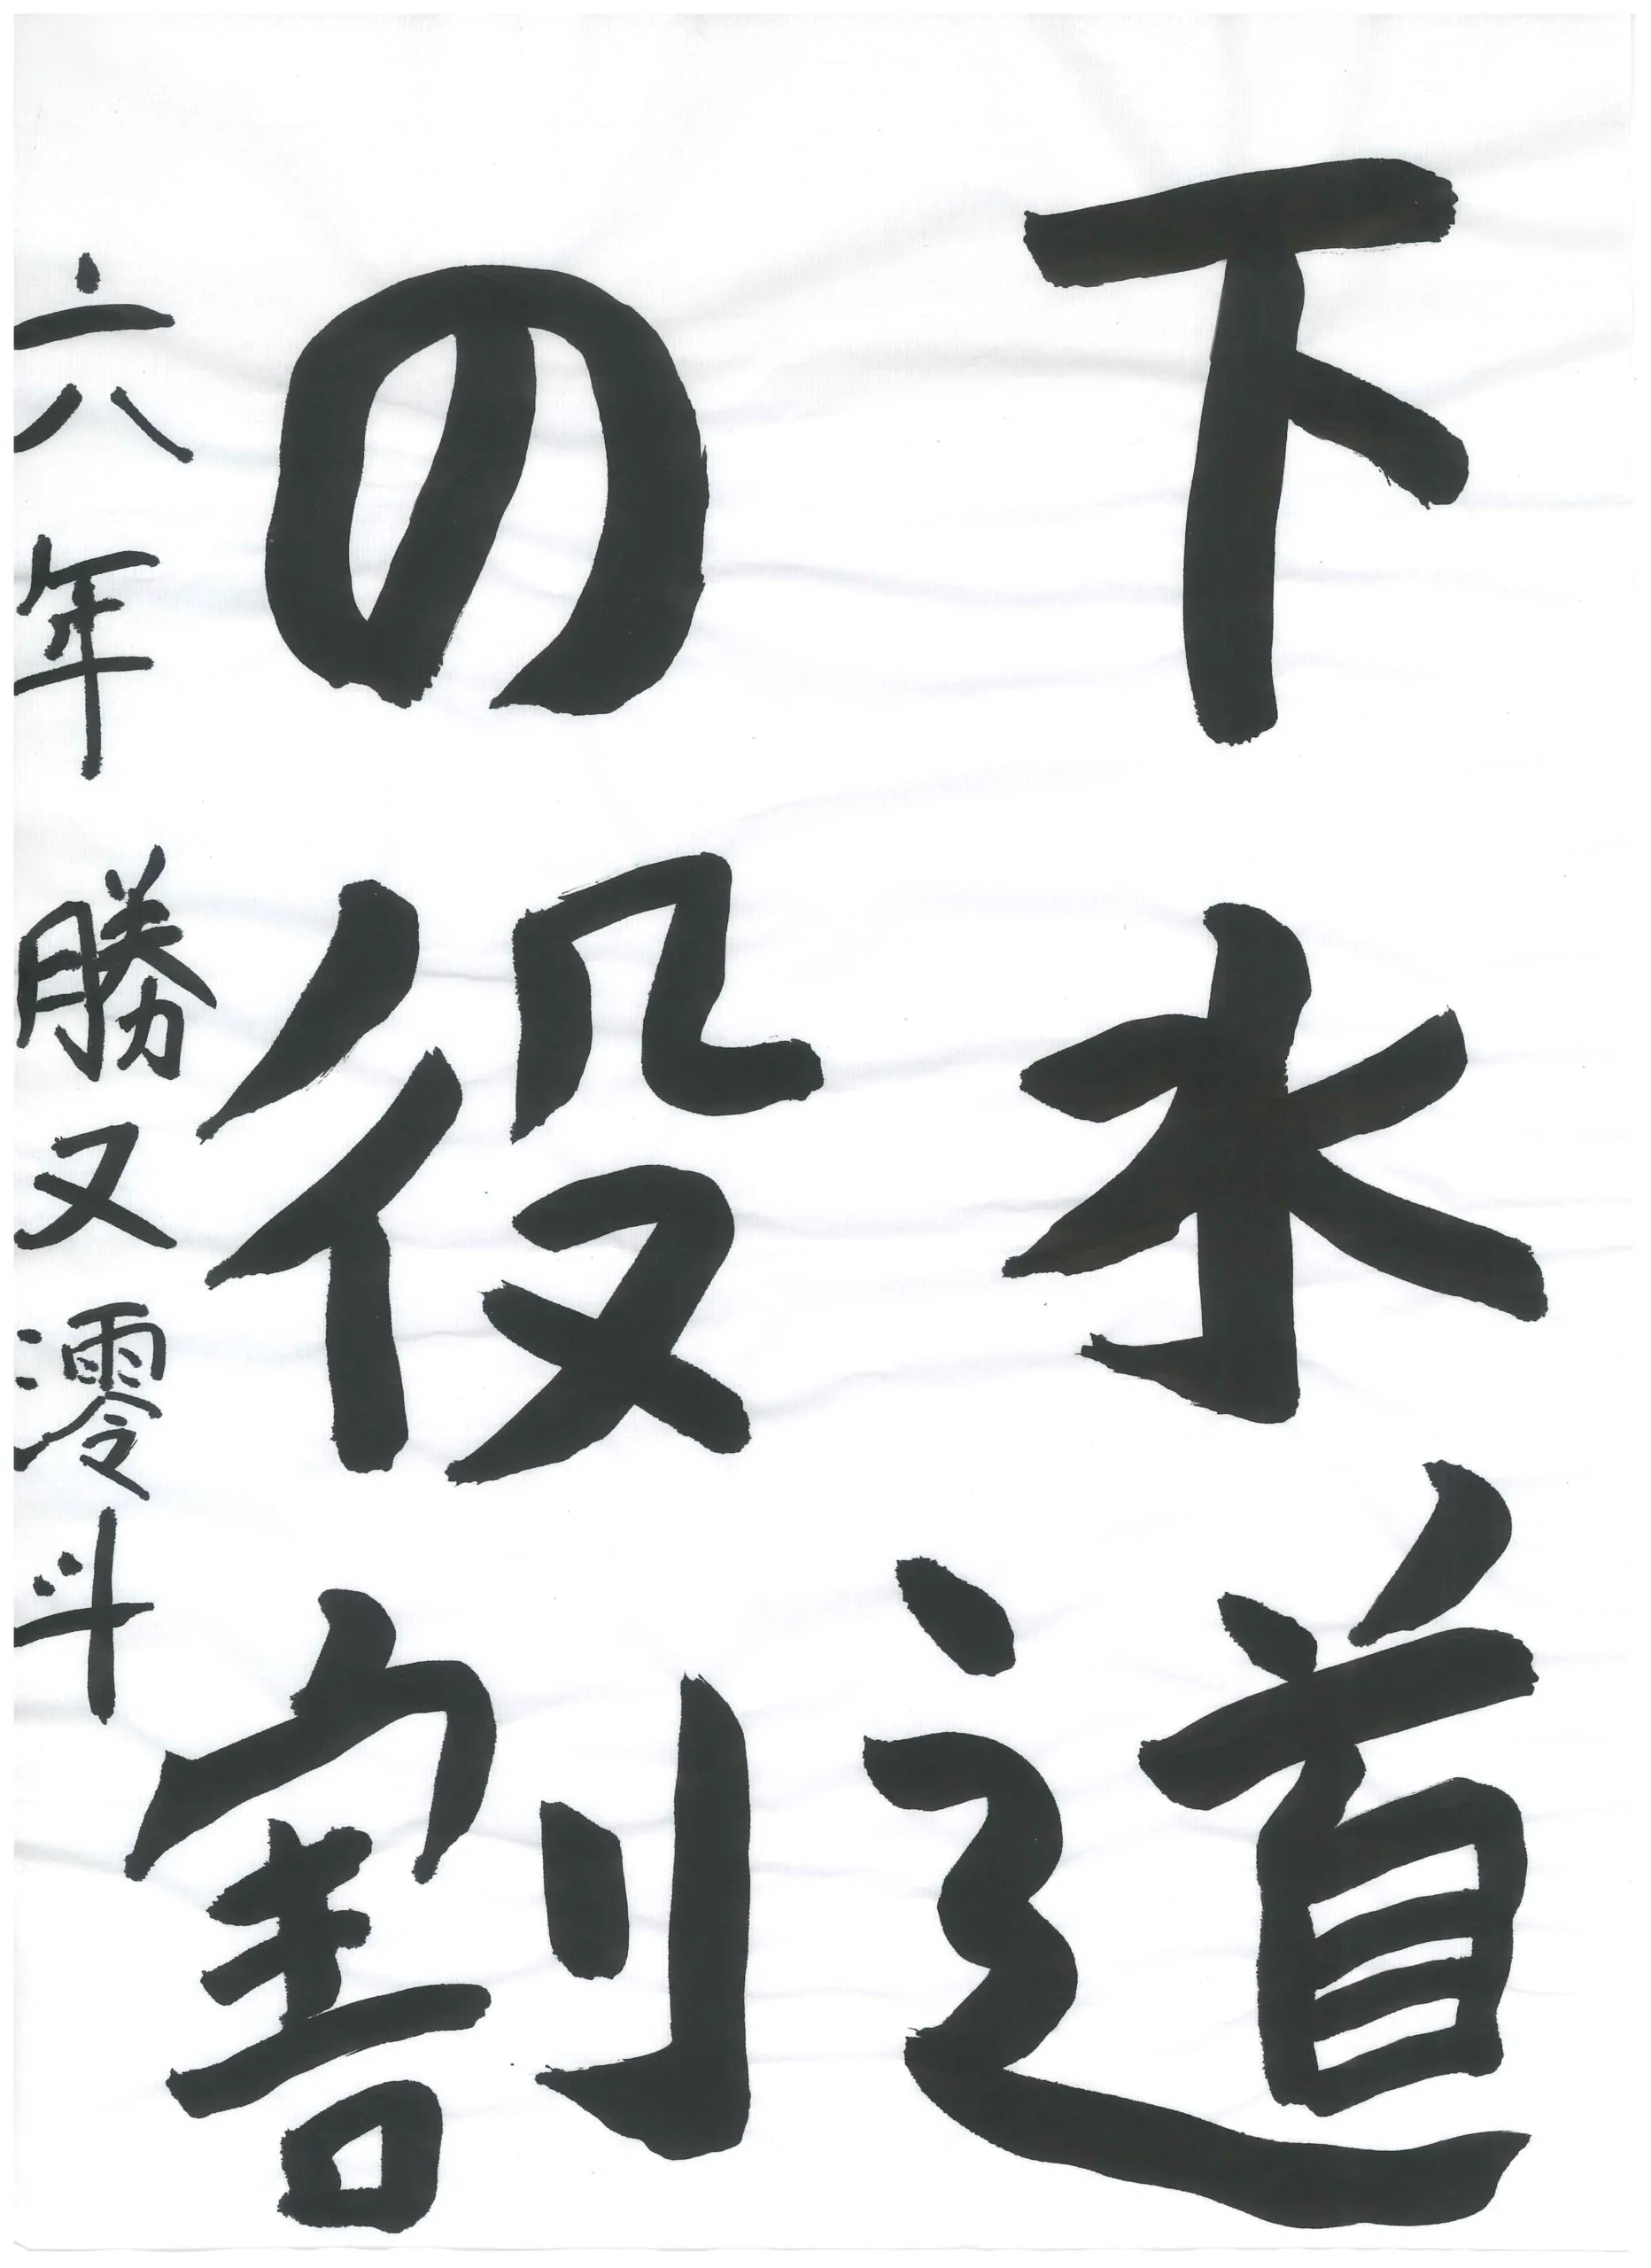 下水道
の役割
六年 勝又澪斗